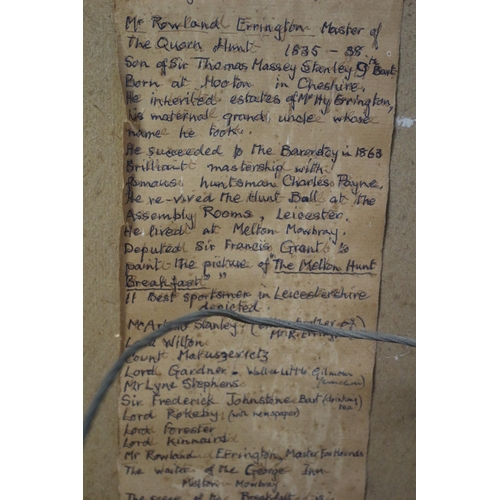 Mr Rowland Errington Master of
The Quorn Hunt 1835 - 38
Son of Sir Thomas Massey Stanley 9th Bart
Born at Hooton in Cheshire.
He inherited estates of Mr Hy Errington,
his maternal grand uncle whose
name he took.
He succeeded to the Barontcy in 1863
Brilliant mastership with
famous huntsman Charles Payne.
He re-vived the Hunt Ball at the
Assembly Rooms, Leicester.
He lived at Melton Mowbray.
Deputed Sir Francis Grant to
paint the picture of "The Melton Hunt
Breakfast"
11 Best sportsmen in Leicestershire
depicted.
Stanley, (
Lord Wilton
Count Matuszericz
Lord Gardner - Walter Little Gilmour
Mr Lyne Stephens
Sir Frederick Johnstone Bart (drinking tea
Lord Rokeby (with newspaper)
Lord Forester
Lord Kinnaird
Mr Rowland Errington, Master Fox Hounds
The waiter of the George Inn
Melton-Mowbray
The scene of the Breakfast is